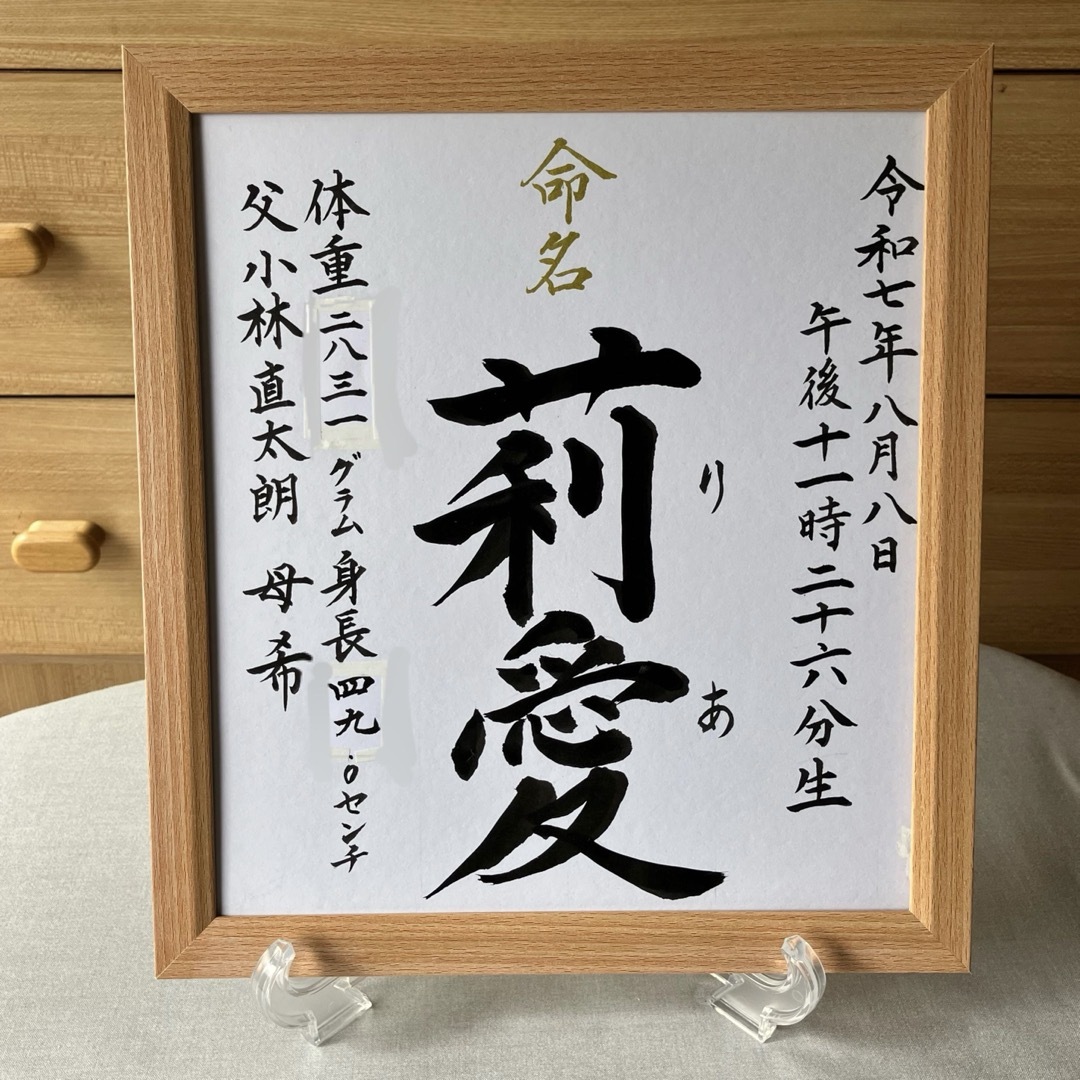 令和七年八月八日
午後十一時二十六分生
命名
りあ
莉愛
体重二八三一グラム身長四九.０センチ
父小林直太朗 母希